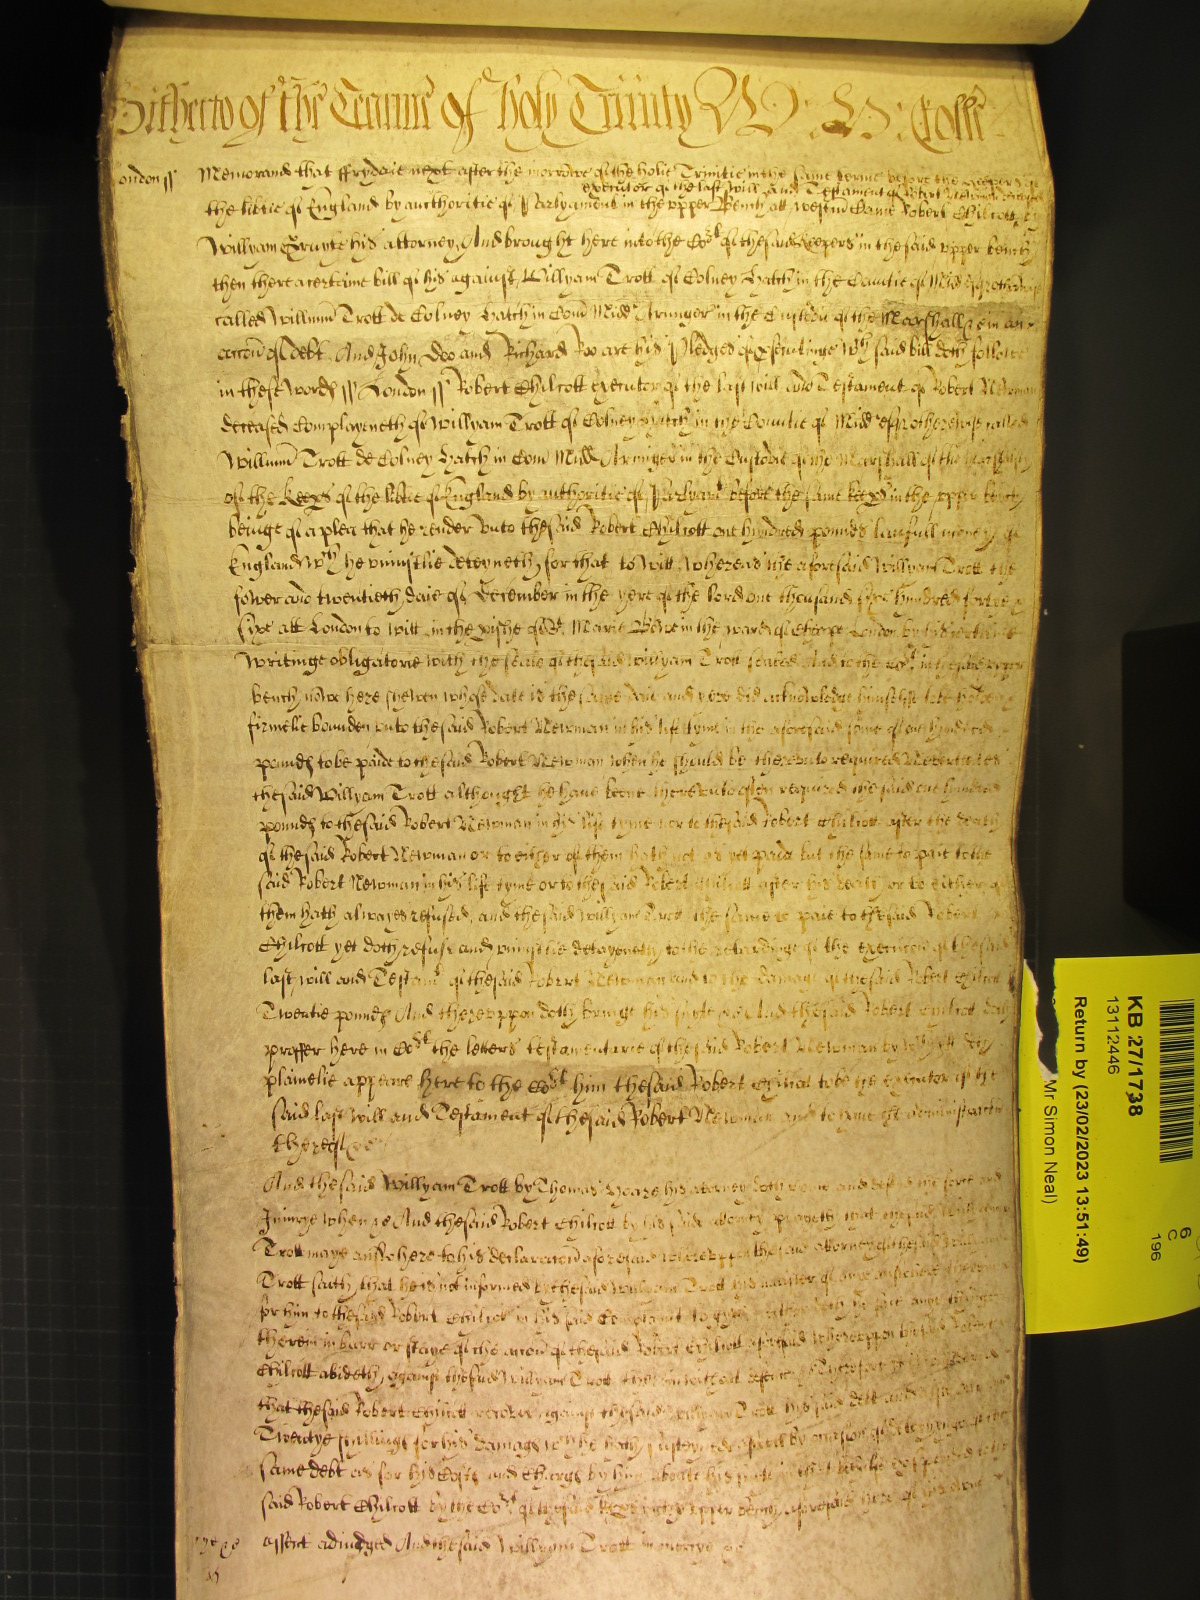 Hitherto of the Tearme of holy Trinity
London ss Memorand that ffrydaie next after the morrowe of the holie Trinitie in the same terme before the keepers of
executor of the last will and Testament of Robert Newman deceased
the libtie of England by aucthoritie of Parlyament in the vpper Bench att westm Came Robert Chilcott by
Willyam his attorney, And brought here into the Cort of the said keepers in the said vpper bench
then there a certaine bill of his against Willyam Trott of Colney Hatch in the Countie of Midd esqr otherwise
called Willmm Trott de Colney Hatch in Com Midd Armiger in the Custodie of the Marshall &c in an
accon of debt, And John Doo and Richard Roo are his Pledges of psecutinge wch said bill doth followe
in these words ss London ss Robert Chilcott executor of the last will and Testament of Robert Newman
deceased Complayneth of Willyam Trott of Colney Hatch in the Countie of Midd esqr otherwise called
Willmm Trott de Colney Hatch in Com Midd Armiger in the Custodie of the Marshall of the Marshalsey
of the Keeps of the libtie of England by authoritie of Parlyamt before the same keeps in the vpper bench
beinge of a plea that he render vnto the said Robert Chilcott one hundred pounds lawfull money of
England wch he vniustlie deteyneth, for that to witt, whereas the aforesaid Willyam Trott the
fower and twentieth daie of December in the yere of the lord one thousand six hundred fortie
sixe att London to witt in the pishe of St Marie Bowe in the ward of Cheape London by his certaine
writinge obligatorie with the seale of the said Willyam Trott sealed And to the Cort in the said vpper
bench nowe here shewen whose date is the same daie and yere did acknowledge himselfe to be
firmelie bounden vnto the said Robert Newman in his life tyme in the aforesaid some of one hundred
pounds to be paide to the said Robert Newman when he should be therevnto required Neverthelesse
the said Willyam Trott althought he haue beene therevnto often required the said one hundred
pounds to the said Robert Newman in his life tyme nor to the said Robert Chilcott after the death
of the said Robert Newman or to either of them hath not as yet paide but the same to paie to the
said Robert Newman in his life tyme or to the said Robert Chilcott after his death or to either of
them hath alwayes refused, and the said Willyam Trott the same to paie to the said Robert
Chilcott yet doth refuse and vniustlie deteyneth, to the retardinge of the execucon of the said
last will and Testamt of the said Robert Newman and to the damage of the said Robert Chilcott
Twentie pounds And therevppon doth bringe his suyte &c And the said Robert Chilcott doth
proffer here in Cort the letters testamentarie of the said Robert Newman by wch itt doth
plainelie appeare here to the Cort him the said Robert Chilcott to be the executor of the
said last will and Testament of the said Robert Newman and to haue the administracon
thereof &c
And the said Willyam Trott by Thomas his attorney doth come and defend the force and
Iniurye when &c And the said Robert Chilcott by his said attorney prayeth that the said Willyam
Trott maye answere here to his declaracon aforesaid wherevppon the said attorney of the said Willyam
Trott saith, that he is not informed by the said Willyam Trott his maister of anie answere
for him to the said Robert Chilcott in his said Complaint to give neither doth he saie anie thinge
therein in barr or staye of the accon of the said Robert Chilcott aforesaid wherevppon the said Robert
Chilcott abideth, against the said Willyam Trott therein without defence Therefore it is considered
that the said Robert Chilcott recover against the said Willyam Trott his said debt and
Twentye shillings for his damage wch he hath susteyned aswell by occasion of deteyninge of the
same debt as for his Costs and Charges by him about his suite in that behalfe to the
said Robert Chilcott by the Cort of the said keeps in the vpper bench aforesaid here of his owne
assent adiudged And the said Willyam Trott in mercye &c
KB 27/1738
13112446
Return by (23/02/2023 13:51:49)
Mr Simon Neal)
6
C
196